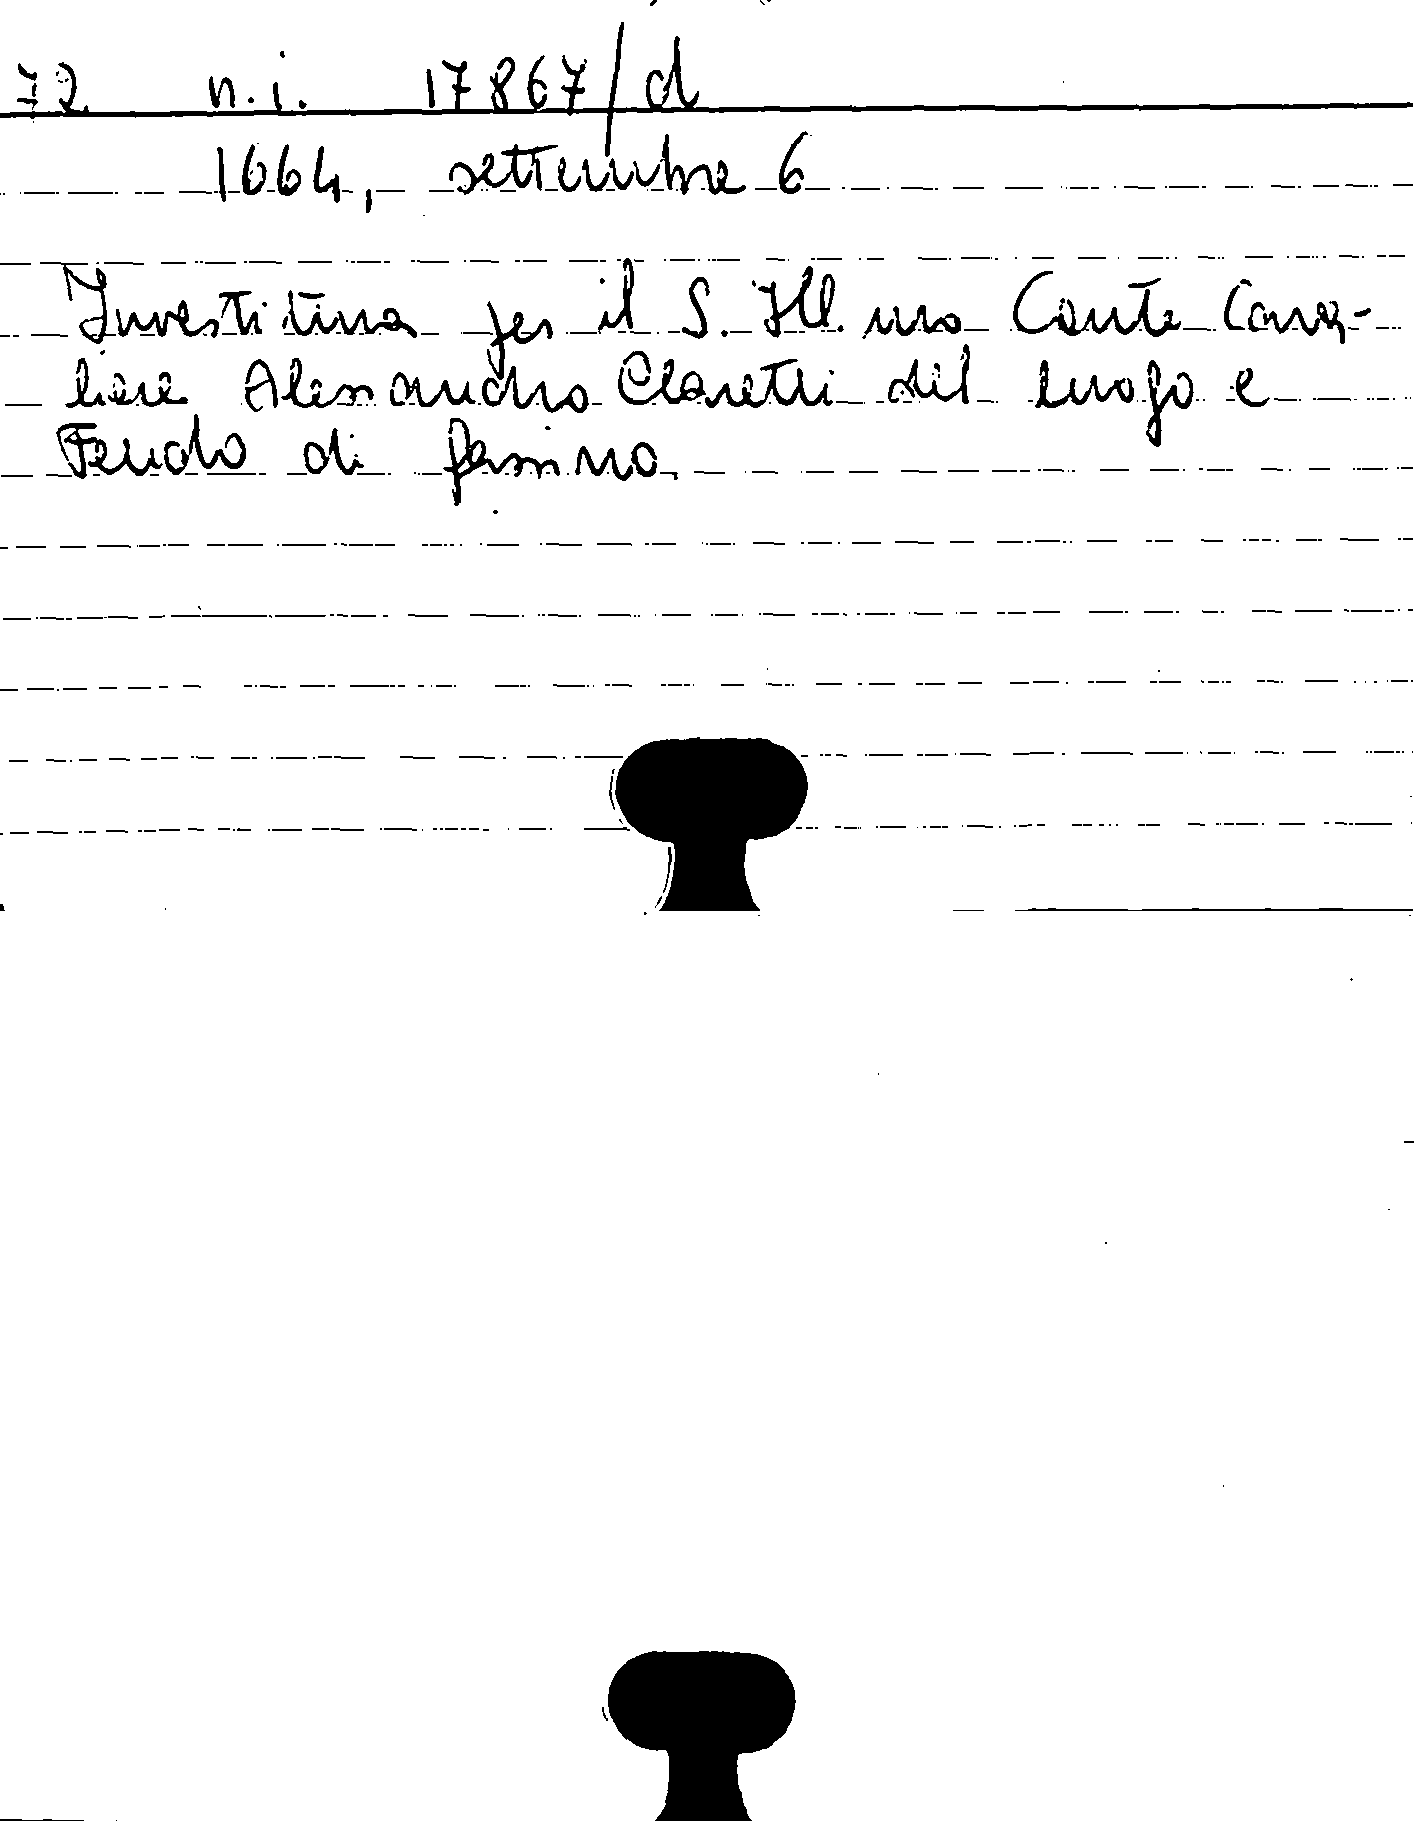 72 n.i. 17867/d
1664, settembre 6
Investitura per il S. Ill.mo Conte Cava-
liere Alessandro Claretti del luogo e
Feudo di Gassino.